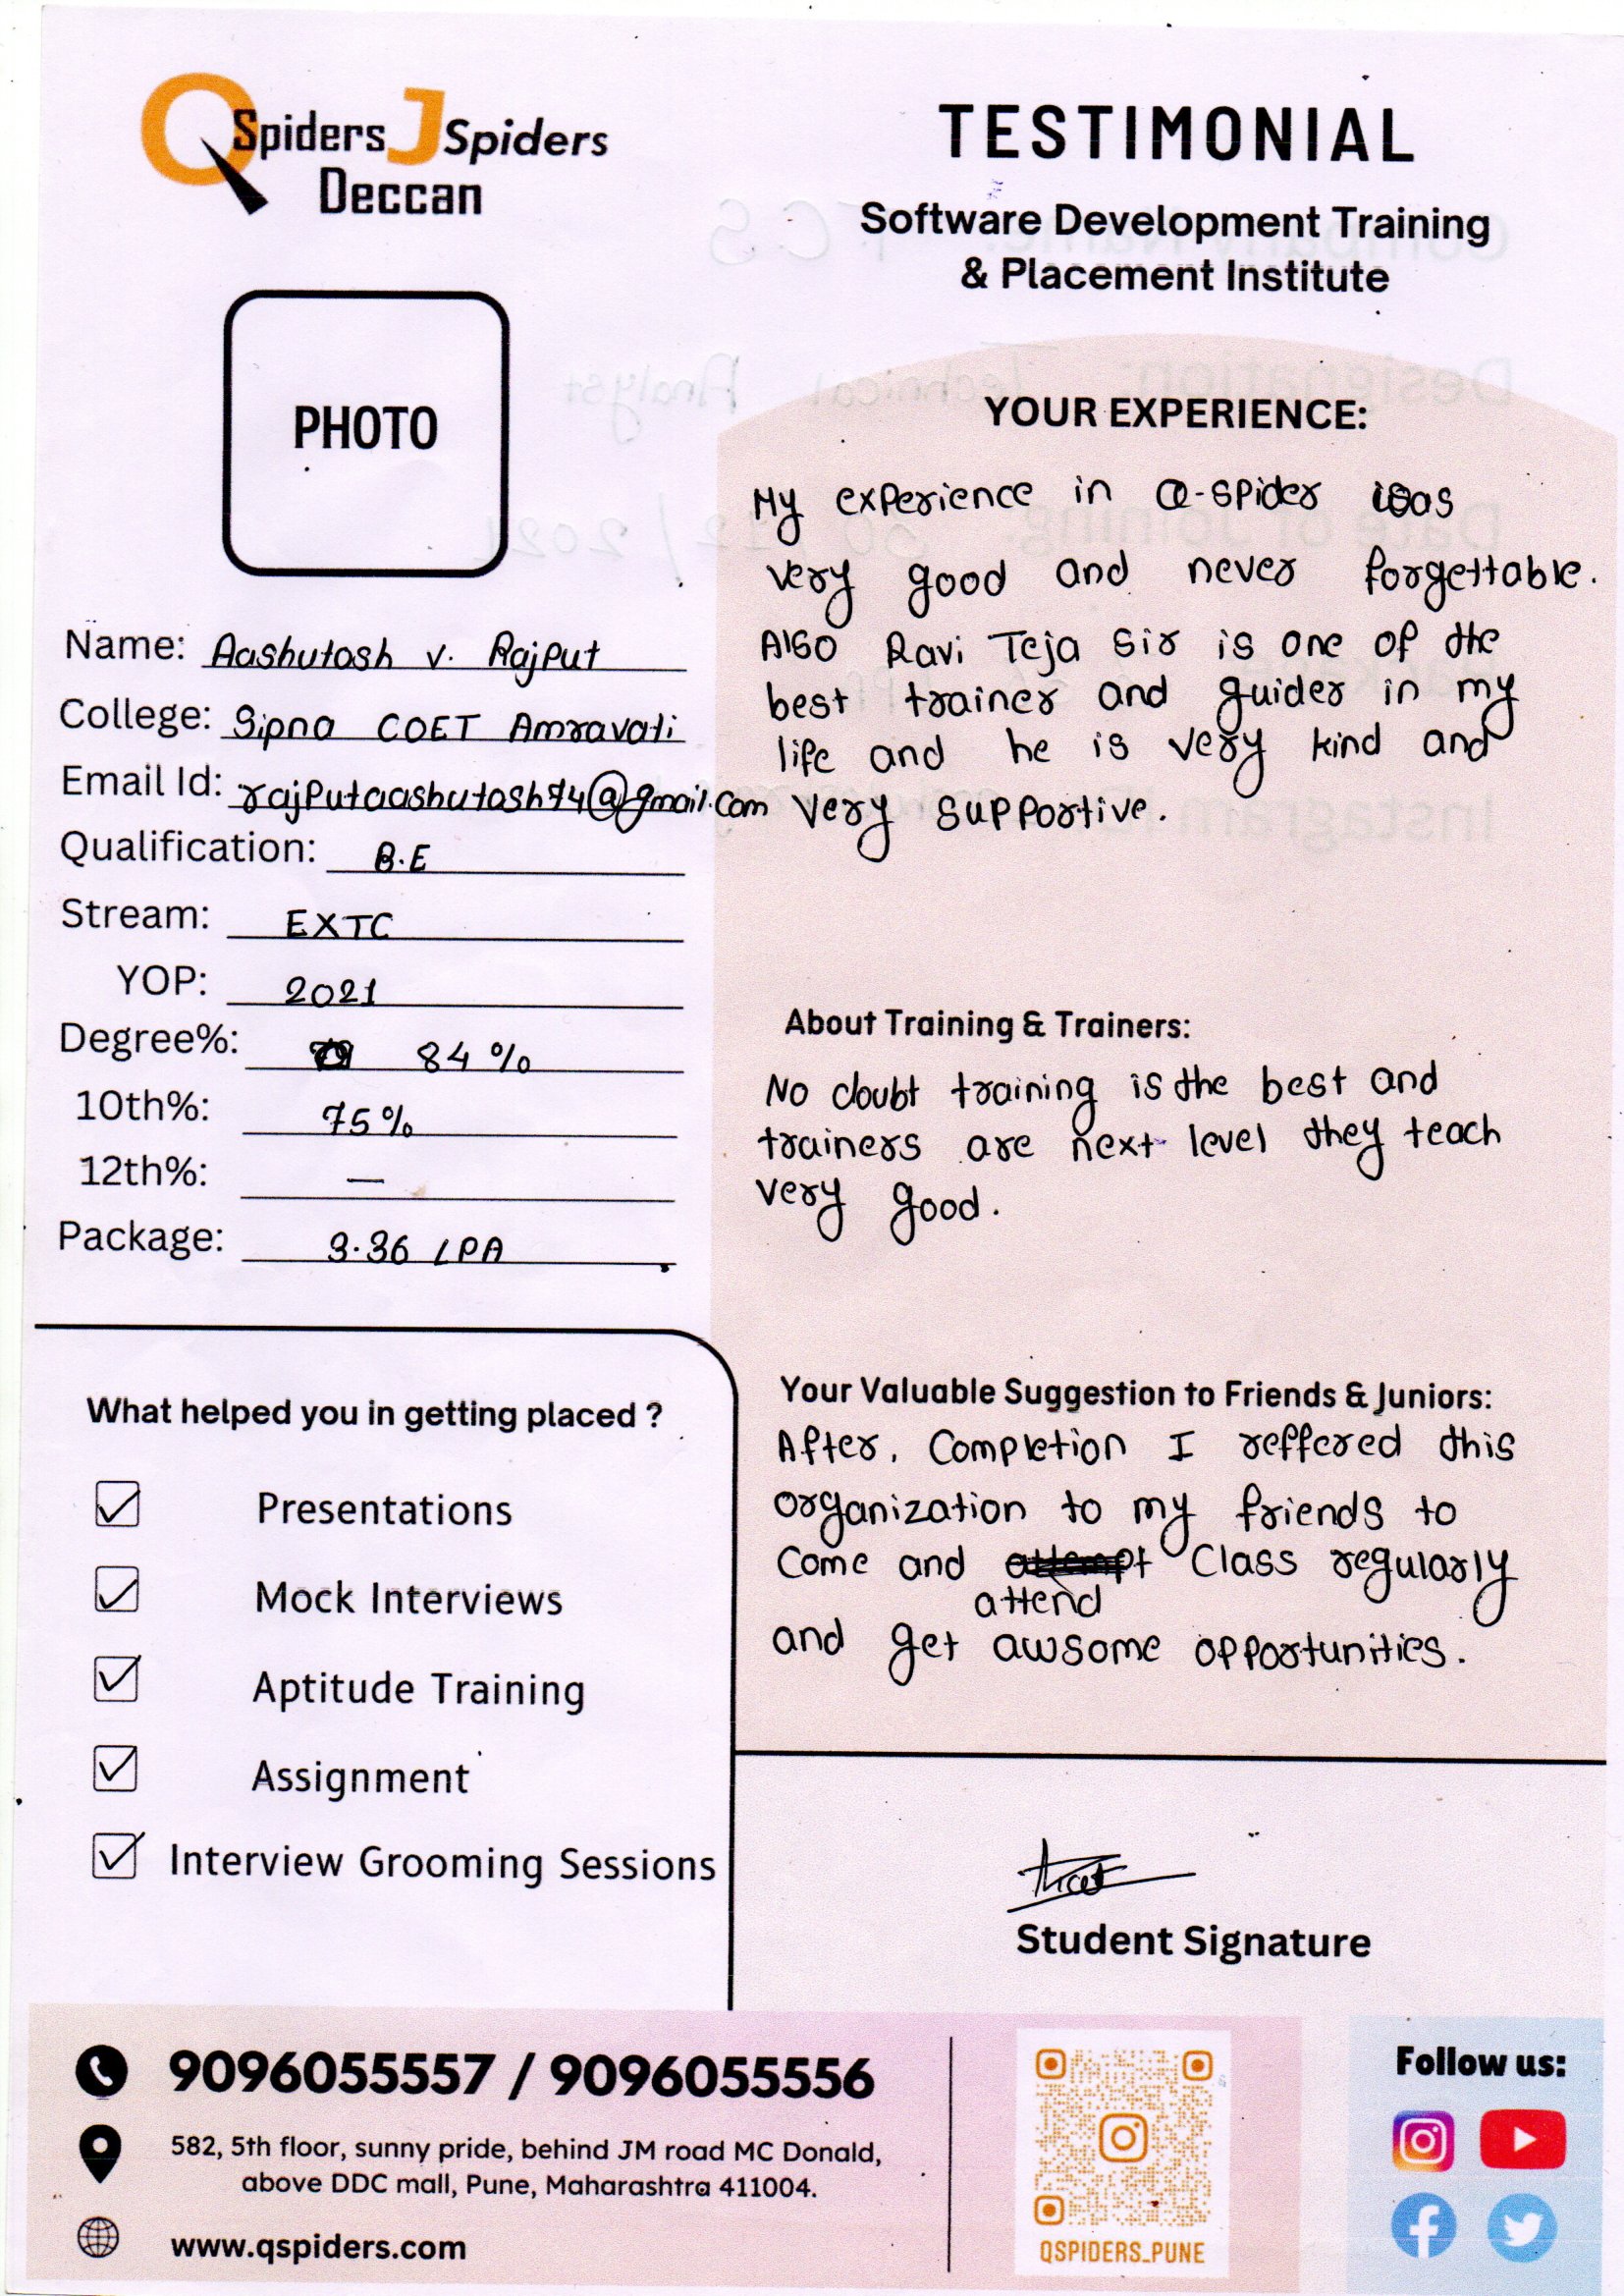 QSpiders JSpiders
Deccan
TESTIMONIAL
Software Development Training
& Placement Institute
PHOTO
Name: Aashutosh v. Rajput
College: Sipna COET Amravati
Email Id: rajputaashutosh74@gmail.com
Qualification: B.E
Stream: EXTC
YOP: 2021
Degree%: 84 %
10th%: 75 %
12th%: —
Package: 3.36 LPA
What helped you in getting placed ?
Presentations
Mock Interviews
Aptitude Training
Assignment
Interview Grooming Sessions
YOUR EXPERIENCE:
My experience in Q-spider was
very good and never forgettable.
Also Ravi Teja sir is one of the
best trainer and guider in my
life and he is very kind and
very supportive.
About Training & Trainers:
No doubt training is the best and
trainers are next level they teach
very good.
Your Valuable Suggestion to Friends & Juniors:
After, Completion I reffered this
organization to my friends to
Come and attempt Class regularly
attend
and get awsome opportunities.
Student Signature
9096055557 / 9096055556
582, 5th floor, sunny pride, behind JM road MC Donald,
above DDC mall, Pune, Maharashtra 411004.
www.qspiders.com
QSPIDERS_PUNE
Follow us: